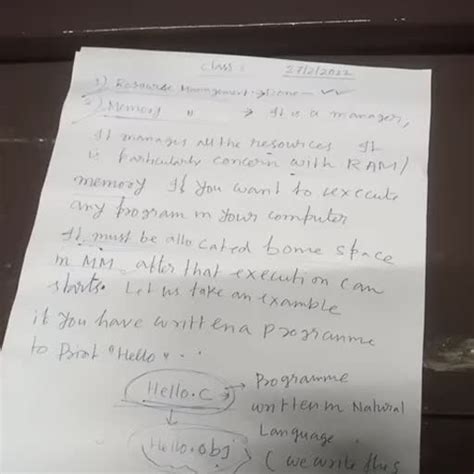 Class: 27/2/2022
1) Resourse Management → Done — ✓✓
2) Memory " → It is a manager,
It manages all the resources It
is particularly concern with RAM/
memory If you want to execute
any program in your computer
It must be allocated some space
in MM, after that execution can
starts. Let us take an examble
if you have written a programme
to Print "Hello" . .
Hello.c → Programme
written in Natural
↓ Language
Hello.obj ( we write this